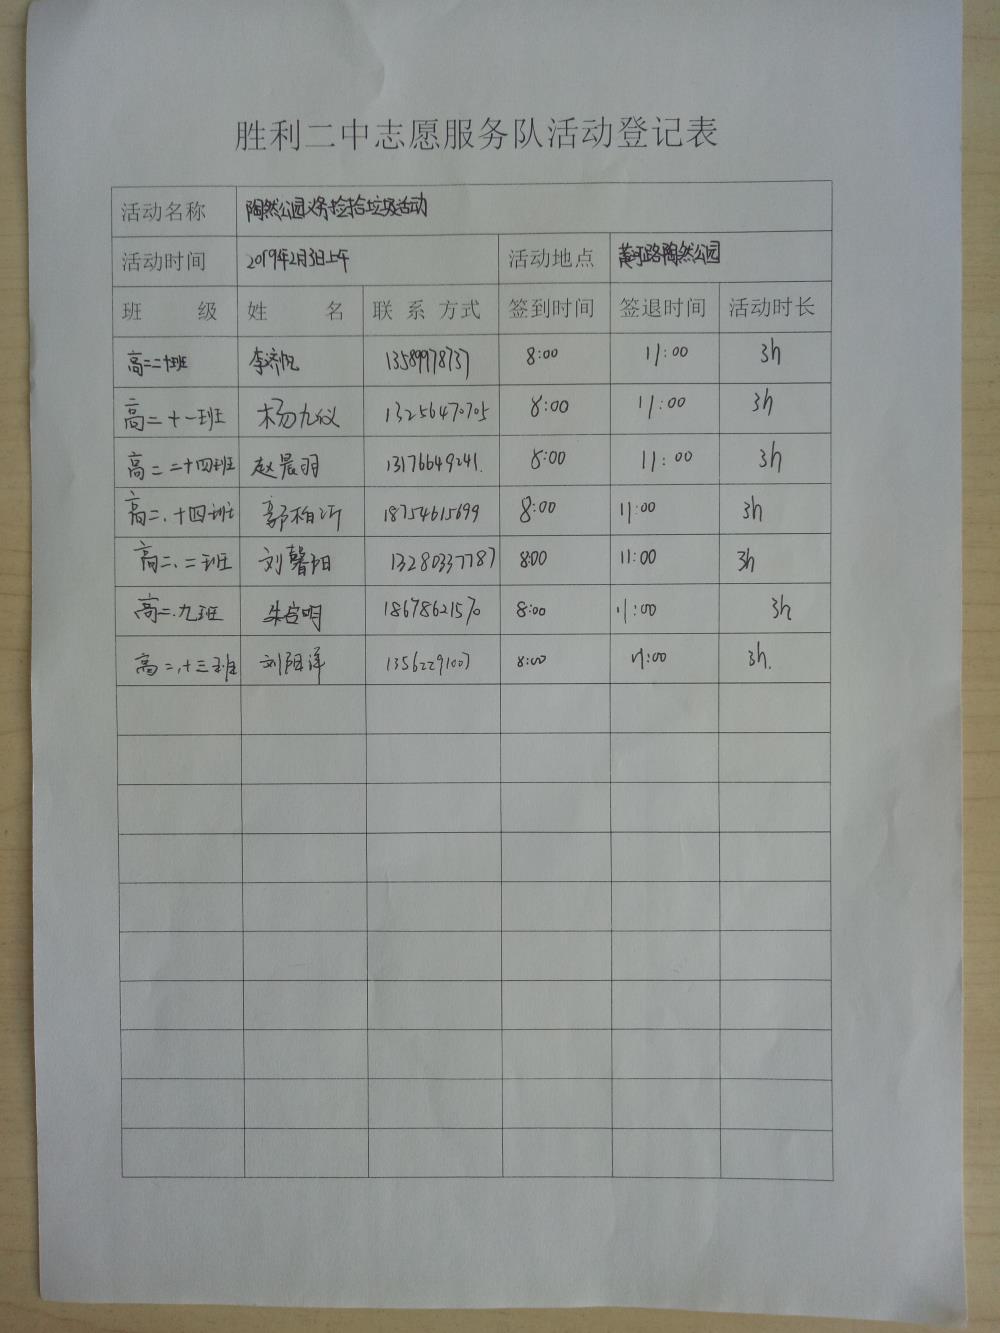 胜利二中志愿服务队活动登记表
活动名称 陶然公园义务捡拾垃圾活动
活动时间 2019年2月3日上午 活动地点 黄河路陶然公园
班 级 姓 名 联 系 方式 签到时间 签退时间 活动时长
高二二十班 李济帆 13589978737 8:00 11:00 3h
高二十一班 杨九仪 13256470705 8:00 11:00 3h
高二二十四班 赵晨羽 13176649241. 8:00 11:00 3h
高二.十四班 郭柏沂 18754615699 8:00 11:00 3h
高二、二班 刘馨阳 13280337787 8:00 11:00 3h
高二.九班 朱启明 18678621570 8:00 11:00 3h
高二.十三班 刘阳洋 13562291007 8:00 11:00 3h.